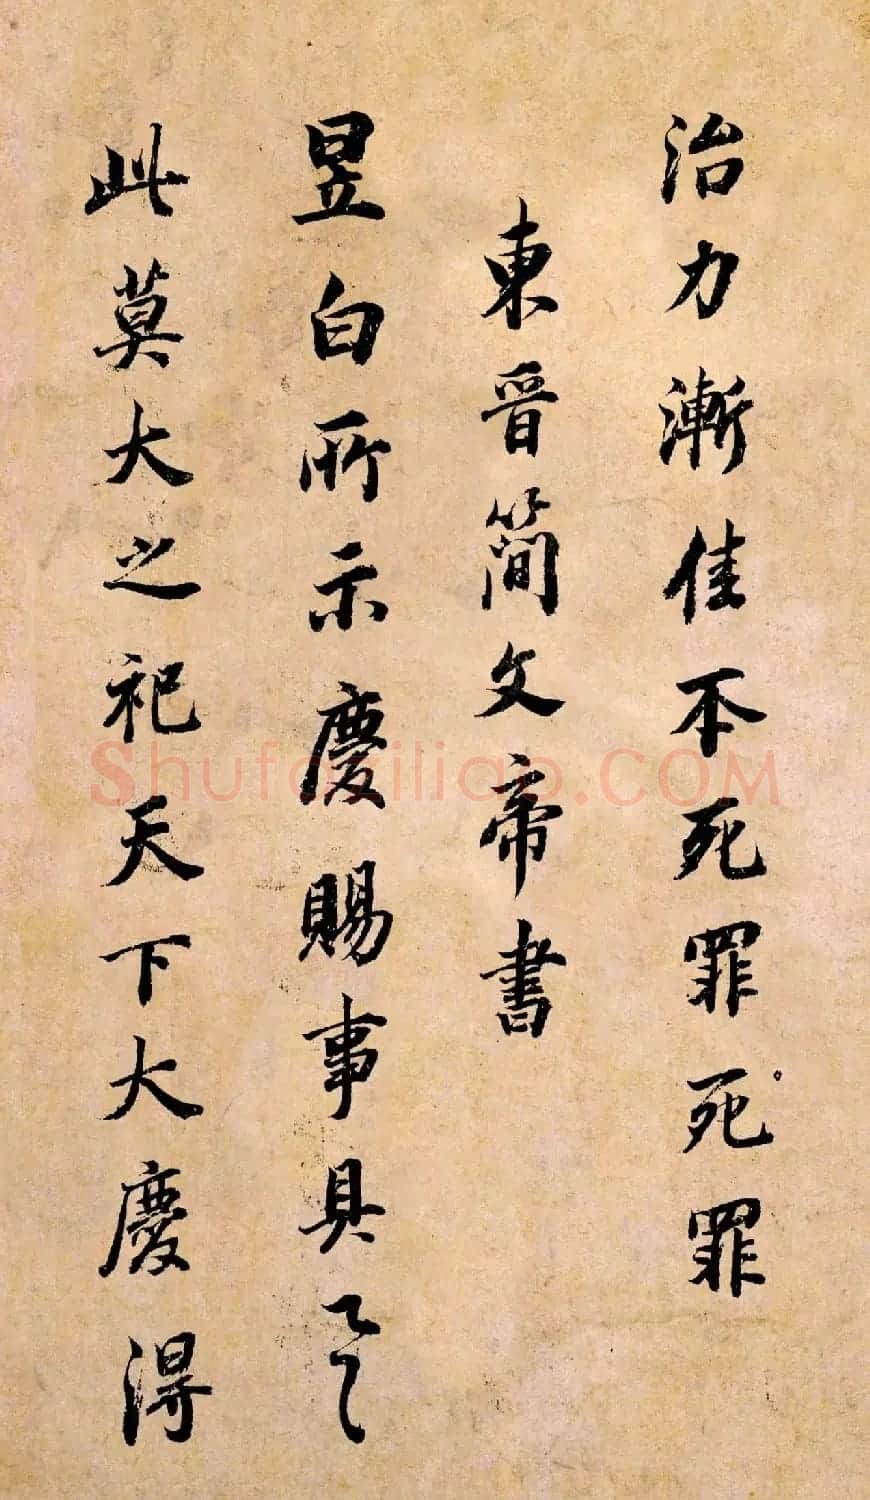 治力漸佳不死罪死罪
東晉簡文帝書
昱白所示慶賜事具之
此莫大之祀天下大慶得
Shufaziliao.COM